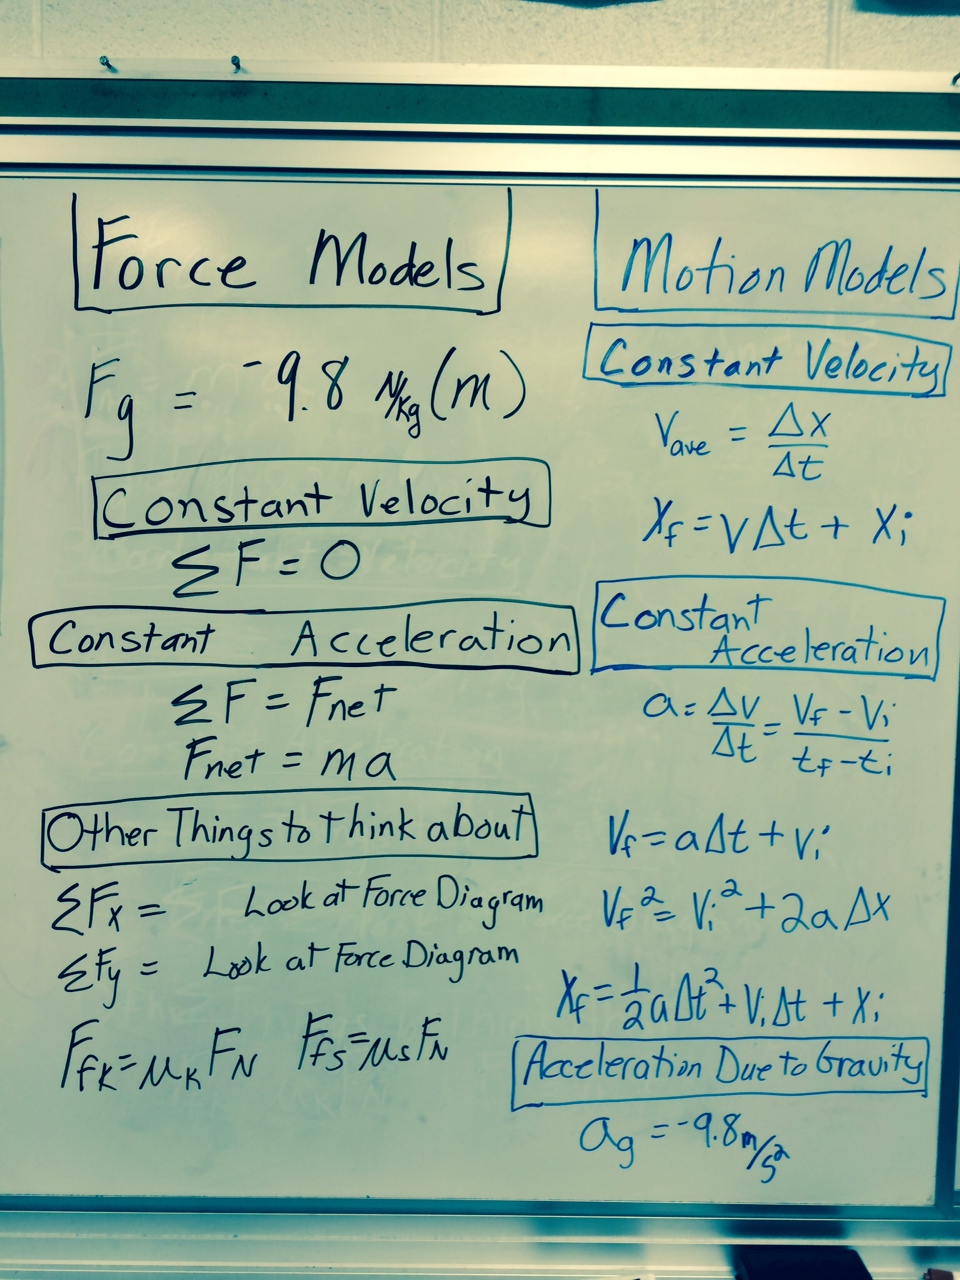 Force Models
Fg = -9.8 N/kg (m)
Constant Velocity
ΣF = 0
Constant Acceleration
ΣF = Fnet
Fnet = ma
Other Things to think about
ΣFx = Look at Force Diagram
ΣFy = Look at Force Diagram
Ffk = μk FN Ffs = μs FN
Motion Models
Constant Velocity
Vave = Δx/Δt
Xf = VΔt + Xi
Constant
Acceleration
a = Δv/Δt = Vf - Vi / tf - ti
Vf = aΔt + Vi
Vf² = Vi² + 2aΔx
Xf = 1/2 aΔt² + ViΔt + Xi
Acceleration Due to Gravity
ag = -9.8 m/s²